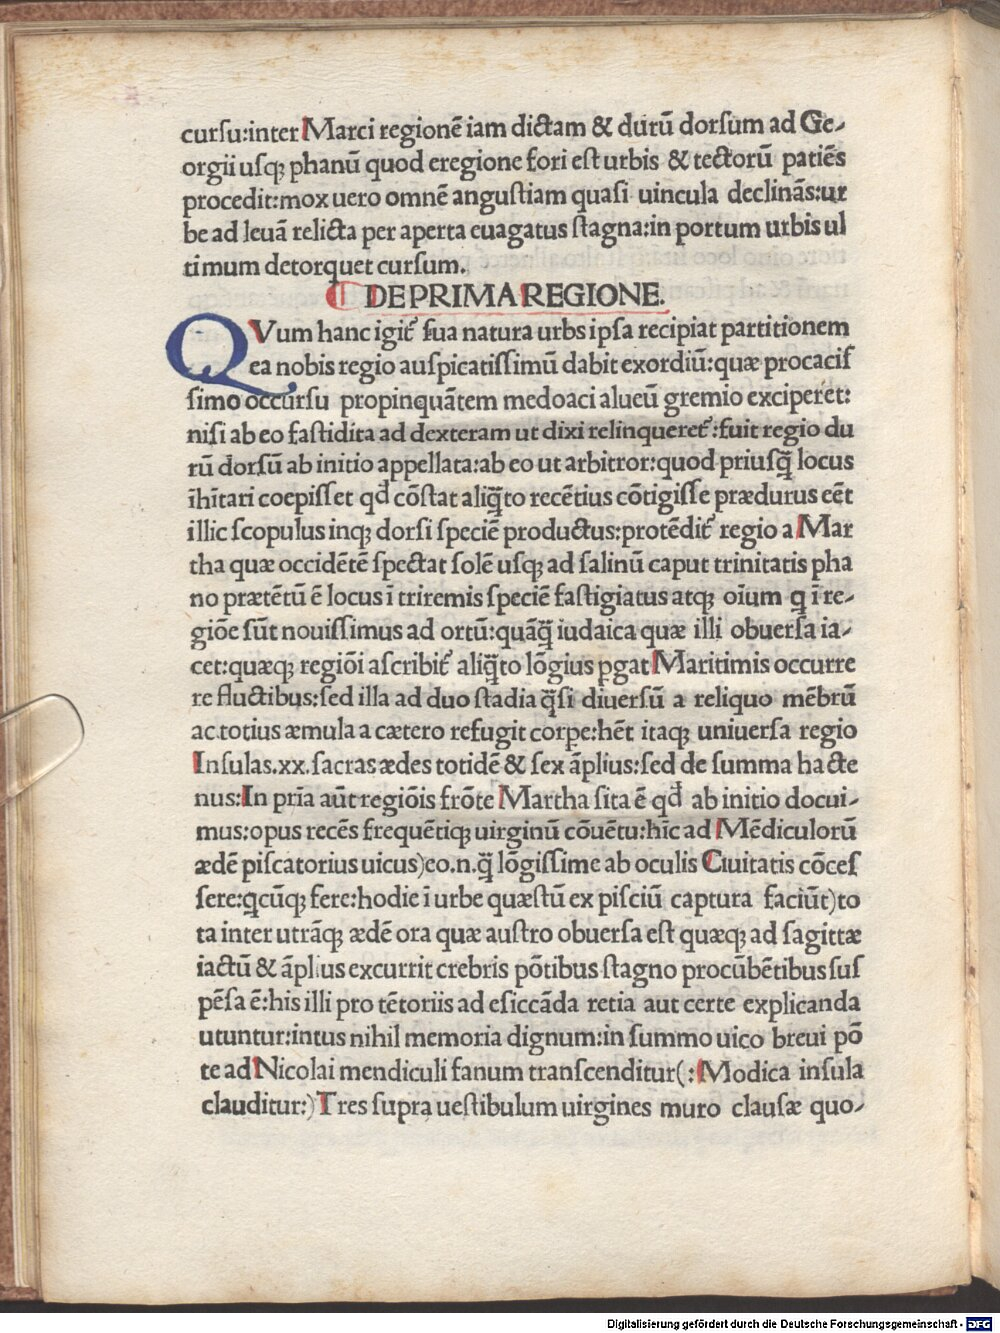 curſu:inter Marci regionē iam dictam & durū dorſum ad Ge-
orgii uſqꝫ phanū quod eregione fori eſt urbis & tectorū patiēs
procedit:mox uero omnē anguſtiam quaſi uincula declinās:ur
be ad leuā relicta per aperta euagatus ſtagna:in portum urbis ul
timum detorquet curſum.
DE PRIMA REGIONE.
QVum hanc igit᷑ ſua natura urbs ipſa recipiat partitionem
ea nobis regio auſpicatiſſimū dabit exordiū:quæ procaciſ
ſimo occurſu propinquātem medoaci alueū gremio exciperet:
niſi ab eo faſtidita ad dexteram ut dixi relinqueret᷑:fuit regio du
rū dorſū ab initio appellata:ab eo ut arbitror:quod priuſq̄ locus
īhītari coepiſſet qd̄ cōſtat aliq̄to recētius cōtigiſſe prædurus eēt
illic ſcopulus inqꝫ dorſi ſpeciē productus:protēdit᷑ regio a Mar
tha quæ occidētē ſpectat ſolē uſqꝫ ad ſalinū caput trinitatis pha
no prætētū ē locus ī triremis ſpeciē faſtigiatus atqꝫ oīum q ī re-
giōe ſūt nouiſſimus ad ortū:quāq̄ iudaica quæ illi obuerſa ia-
cet:quæqꝫ regiōi aſcribit᷑ aliq̄to lōgius ꝑgat Maritimis occurre
re fluctibus:ſed illa ad duo ſtadia q̄ſi diuerſū a reliquo mēbrū
ac totius æmula a cætero refugit corpe:hēt itaqꝫ uniuerſa regio
Inſulas.xx.ſacras ædes totidē & ſex āplius:ſed de ſumma hacte
nus:In pria aūt regiōis frōte Martha ſita ē qd̄ ab initio docui-
mus:opus recēs frequētiqꝫ uirginū cōuētu:hīc ad Mēdiculorū
ædē piſcatorius uicus)eo.n.q̄ lōgiſſime ab oculis Ciuitatis cōceſ
ſere:qcūqꝫ fere:hodie ī urbe quæſtū ex piſciū captura faciūt)to
ta inter utrāqꝫ ædē ora quæ auſtro obuerſa eſt quæqꝫ ad ſagittæ
iactū & āplius excurrit crebris pōtibus ſtagno procūbētibus ſuſ
pēſa ē:his illi pro tētoriis ad eſiccāda retia aut certe explicanda
utuntur:intus nihil memoria dignum:in ſummo uico breui pō
te ad Nicolai mendiculi fanum tranſcenditur(:Modica inſula
clauditur:)Tres ſupra ueſtibulum uirgines muro clauſæ quo-
Digitalisierung gefördert durch die Deutsche Forschungsgemeinschaft - DFG